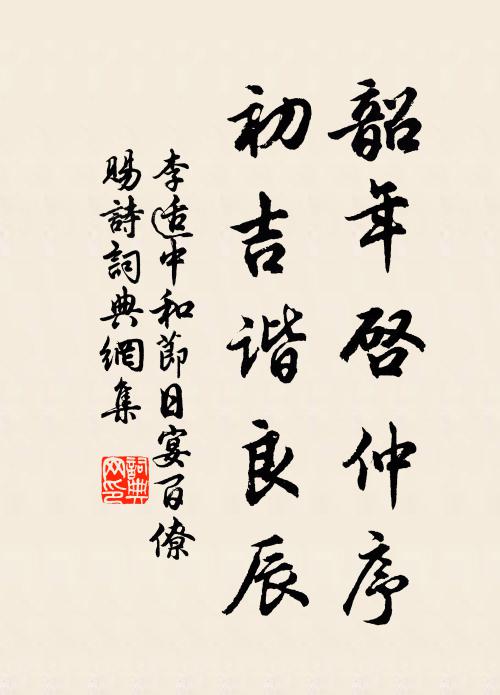 韶年啓仲序
初吉谐良辰
李适中和節日宴百僚
賜詩詞典網集
詞典网印